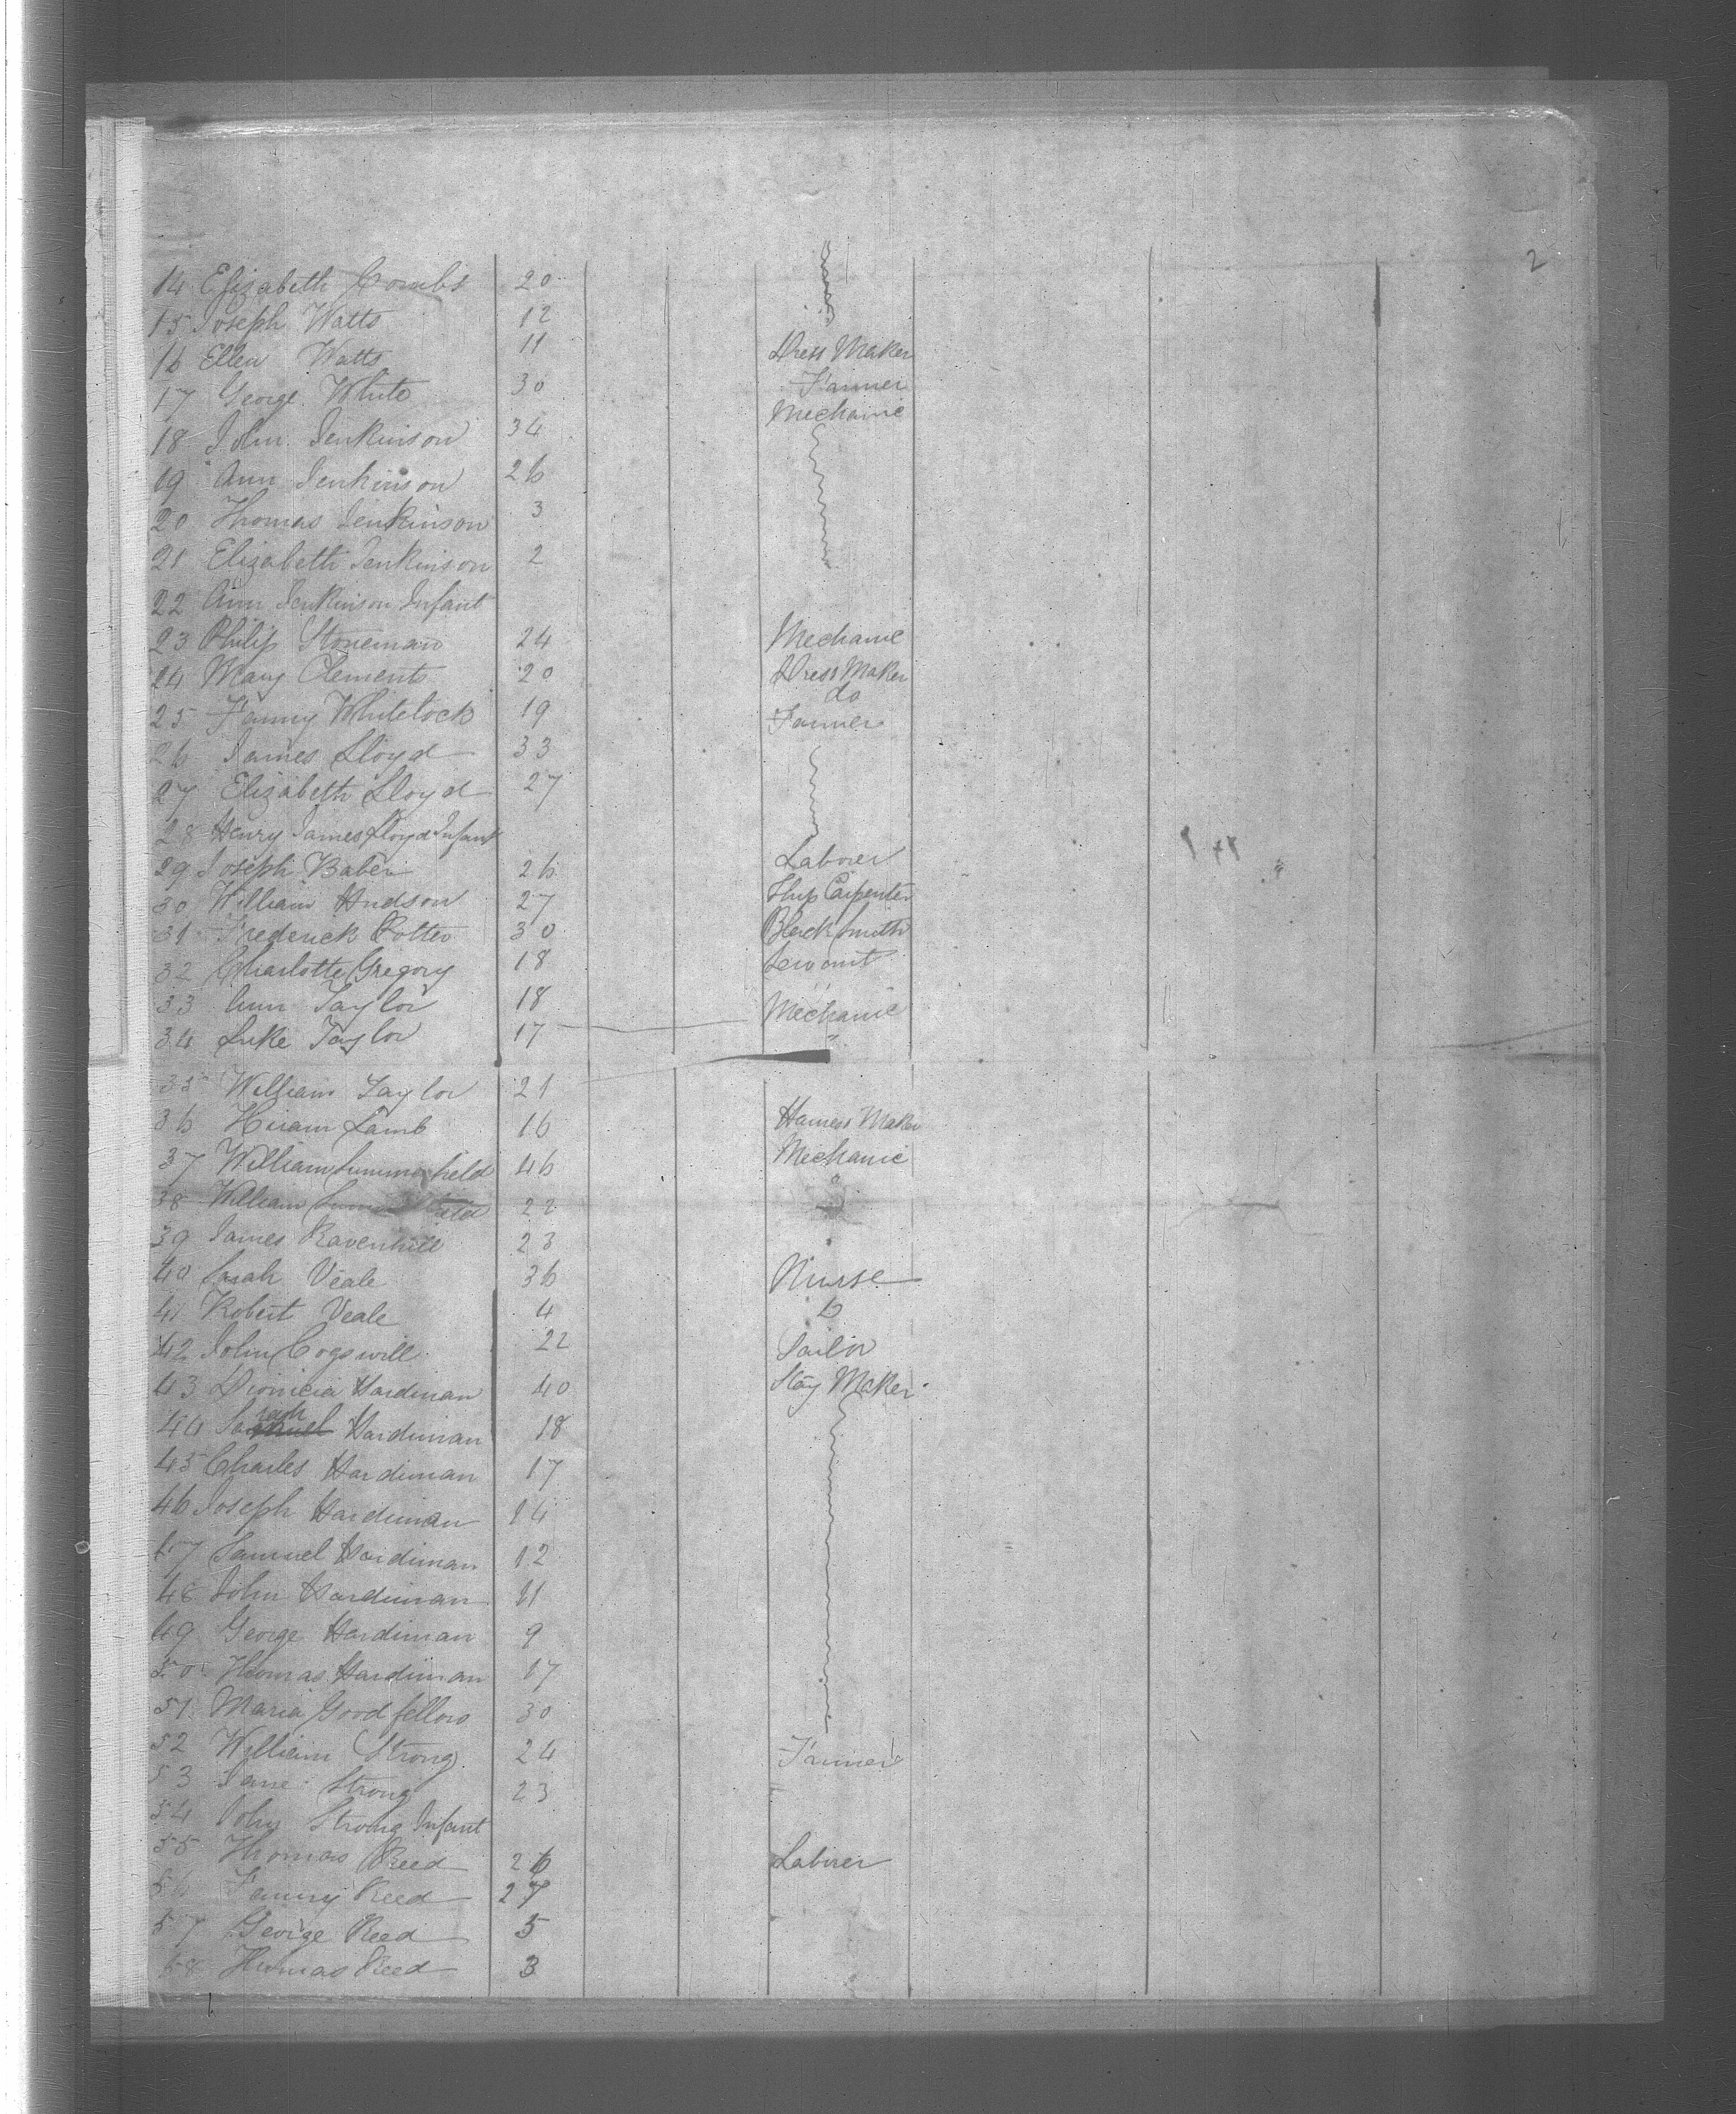 2
14 Elizabeth Combs 20
15 Joseph Watts 12
16 Ellen Watts 11 Dress Maker
17 George White 30 Farmer
18 John Jenkinson 34 Mechanic
19 Ann Jenkinson 26
20 Thomas Jenkinson 3
21 Elizabeth Jenkinson 2
22 Ann Jenkinson Infant
23 Philip Stoneman 24 Mechanic
24 Mary Clements 20 Dress Maker
25 Fanny Whitelock 19 do
26 James Lloyd 33 Farmer
27 Elizabeth Lloyd 27
28 Henry James Lloyd Infant
29 Joseph Baber 26 Laborer
30 William Hudson 27 Ship Carpenter
31 Frederick Potter 30 Black Smith
32 Charlotte Gregory 18 Servant
33 Ann Taylor 18 "
34 Luke Taylor 17 Mechanic
35 William Taylor 21 "
36 Hiram Lamb 16 Harness Maker
37 William Summerfield 46 Mechanic
38 William Summerfield 22 "
39 James Ravenhill 23
40 Sarah Veale 36 Nurse
41 Robert Veale 4
42 John Cogswill 22 Sailor
43 Dionicia Hardiman 40 Stay Maker
44 Sarah Hardiman 18
45 Charles Hardiman 17
46 Joseph Hardiman 14
47 Samuel Hardiman 12
48 John Hardiman 11
49 George Hardiman 9
50 Thomas Hardiman 17
51 Maria Goodfellow 30
52 William Strong 24 Farmer
53 Jane Strong 23
54 John Strong Infant
55 Thomas Reed 26 Laborer
56 Fanny Reed 27
57 George Reed 5
58 Thomas Reed 3